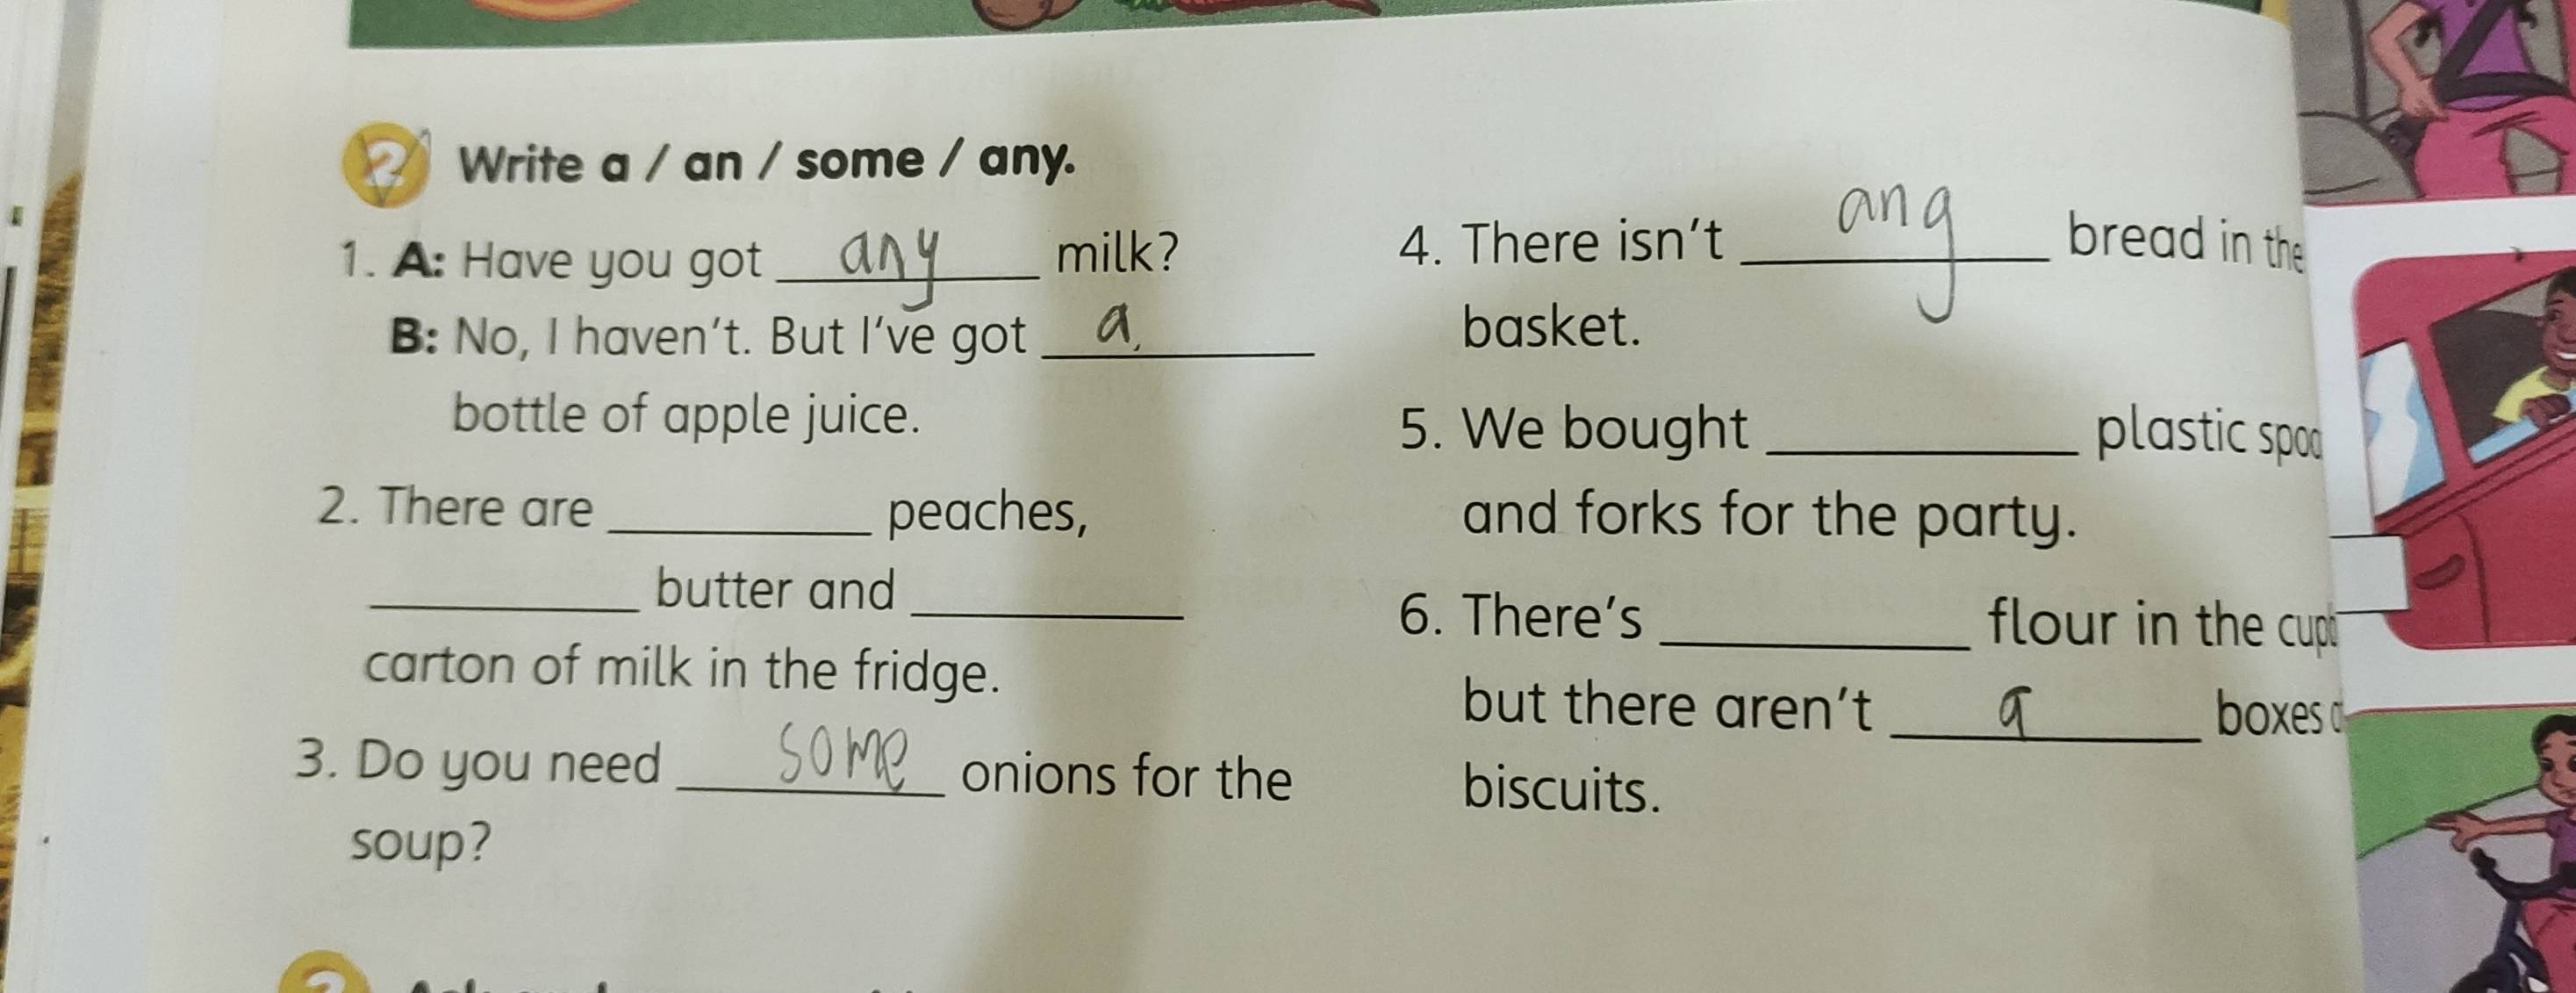 2 Write a / an / some / any.
1. A: Have you got any milk?
B: No, I haven't. But I've got a
bottle of apple juice.
2. There are ________ peaches,
________ butter and ________
carton of milk in the fridge.
3. Do you need some onions for the
soup?
4. There isn't any bread in the
basket.
5. We bought ________ plastic
and forks for the party.
6. There's ________ flour in the
but there aren't a boxes
biscuits.